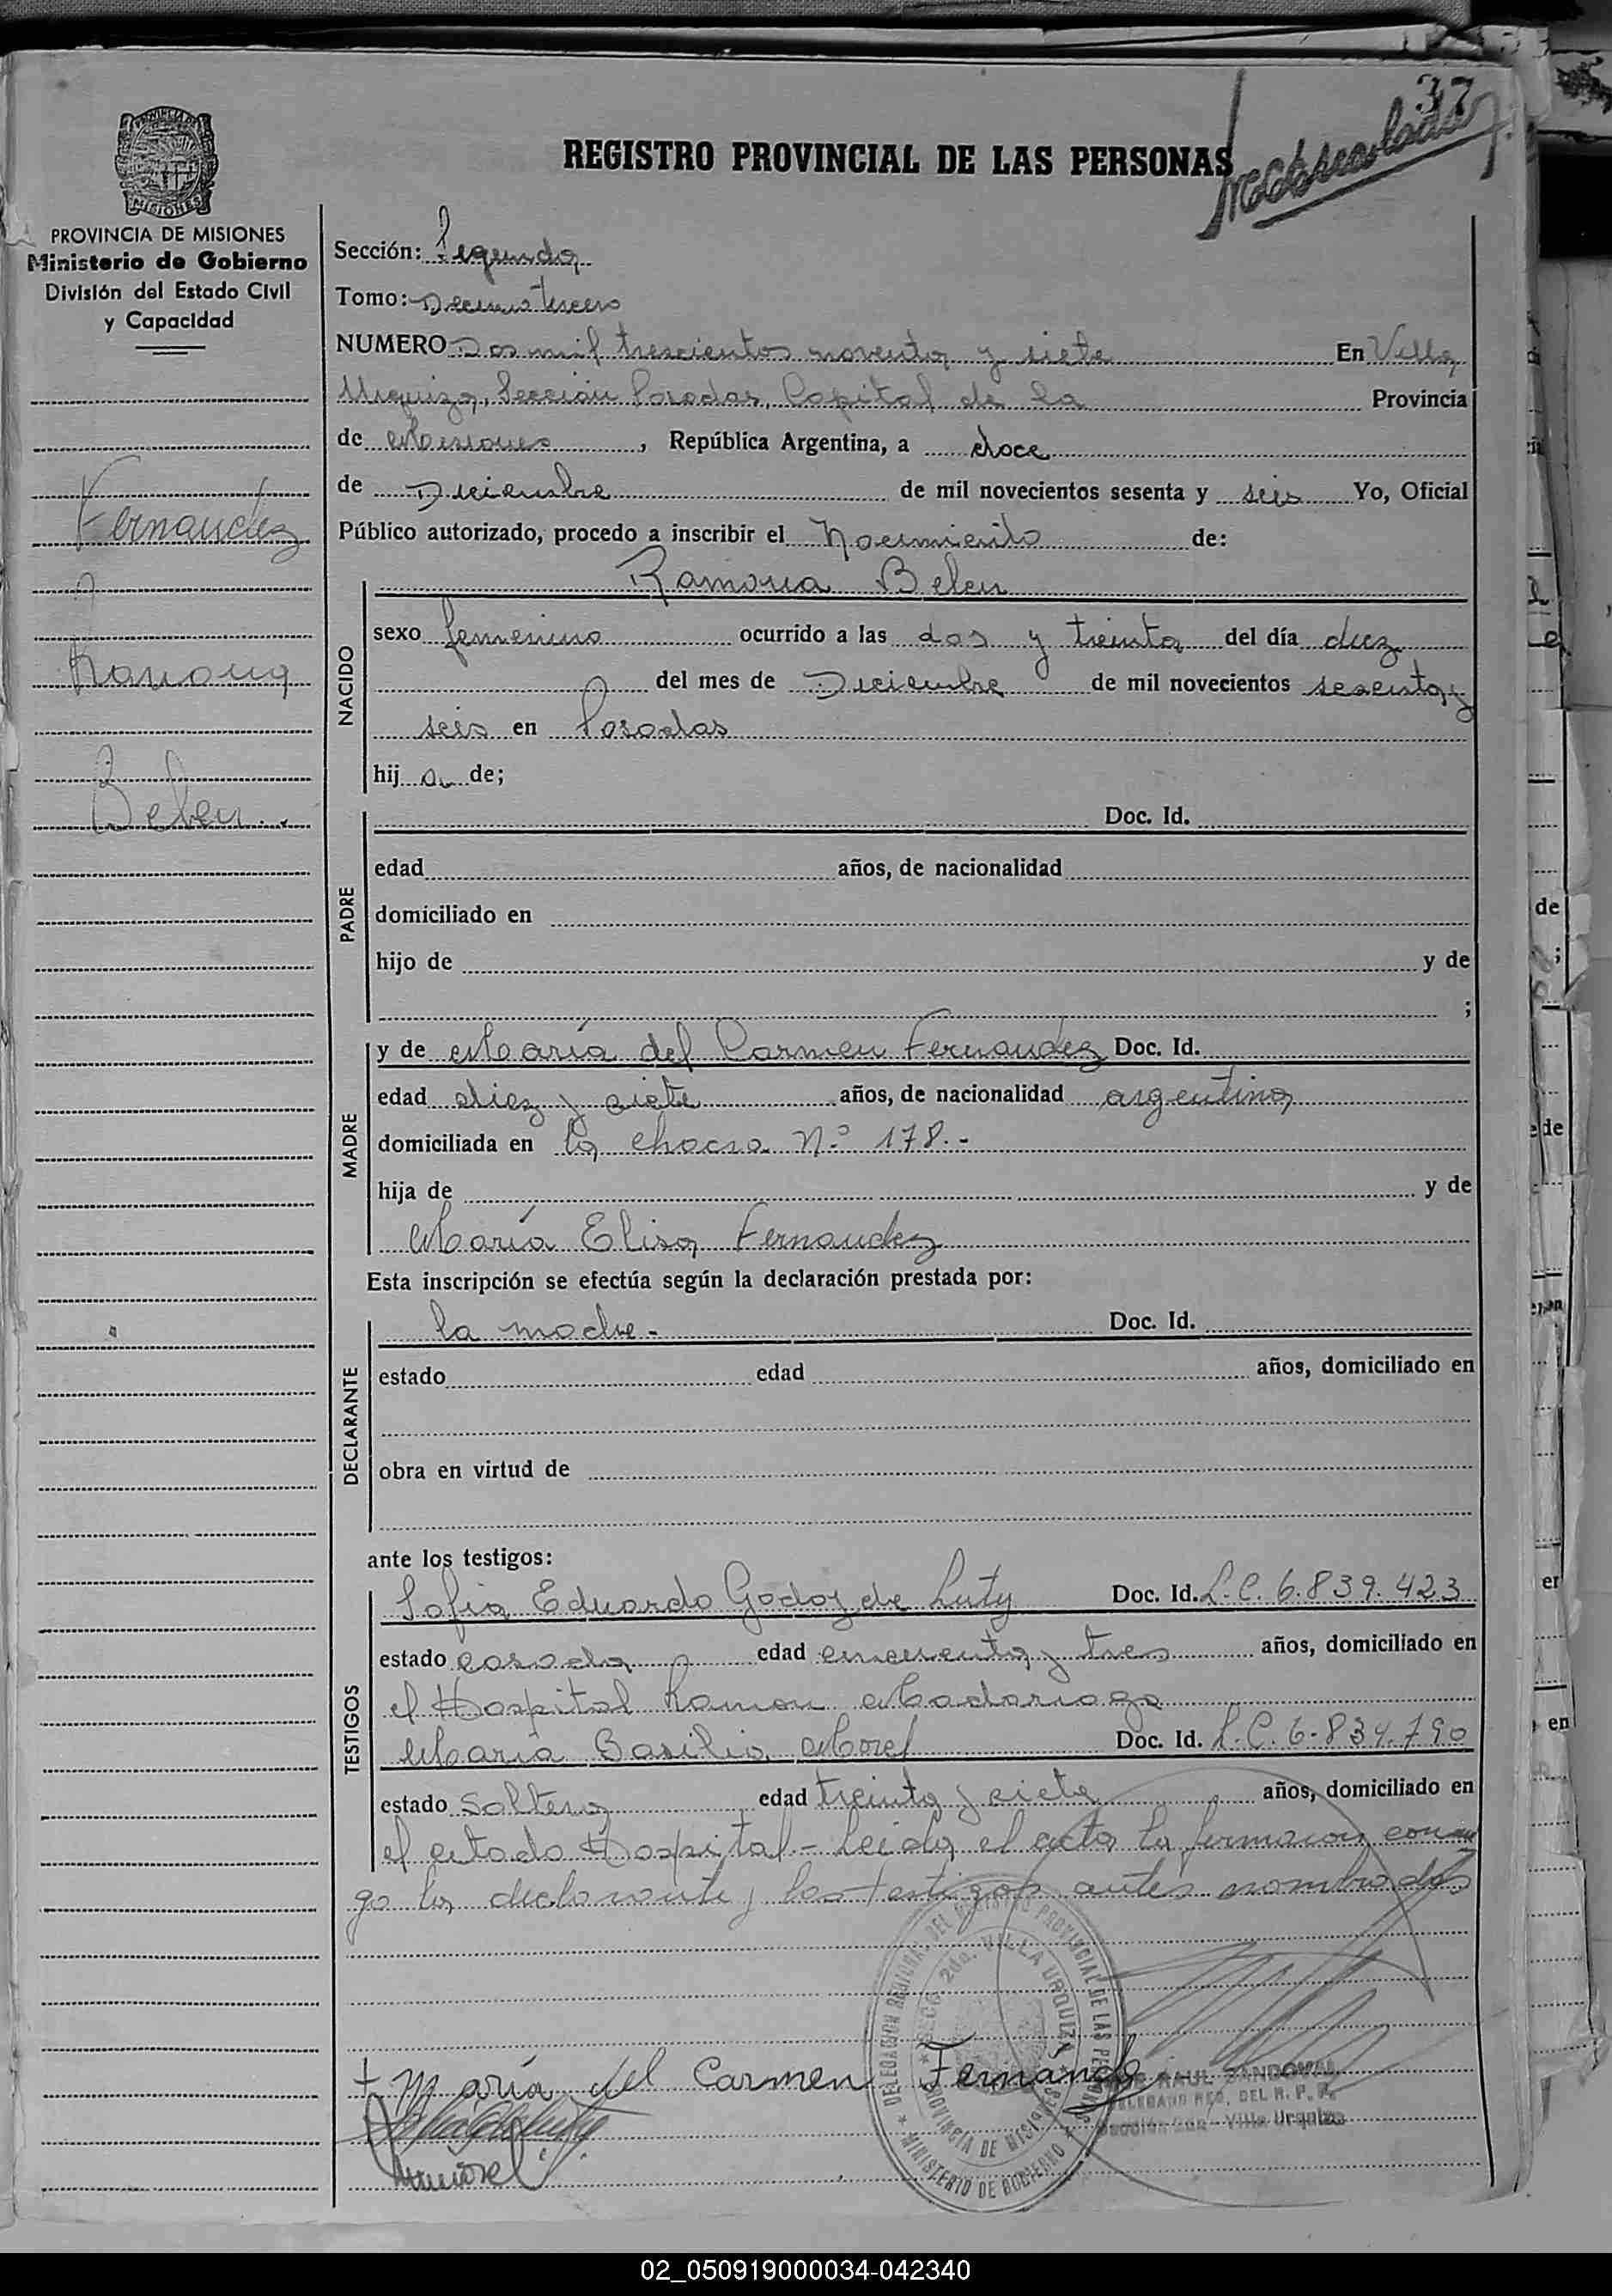 37
REGISTRO PROVINCIAL DE LAS PERSONAS
MISIONES
PROVINCIA DE MISIONES
Ministerio de Gobierno
División del Estado Civil
y Capacidad
Fernandez
Ramona
Belen
Sección: Segunda
Tomo: Decimo tercero
NUMERO Dos mil trescientos noventa y siete En Villa
Urquiza, Sección Posadas, Capital de la Provincia
de Misiones, República Argentina, a doce
de Diciembre de mil novecientos sesenta y seis Yo, Oficial
Público autorizado, procedo a inscribir el Nacimiento de:
Ramona Belen
NACIDO
sexo femenino ocurrido a las dos y treinta del día diez
del mes de Diciembre de mil novecientos sesenta y
seis en Posadas
hija de;
PADRE
Doc. Id.
edad años, de nacionalidad
domiciliado en
hijo de y de
;
MADRE
y de María del Carmen Fernandez Doc. Id.
edad diez y siete años, de nacionalidad argentina
domiciliada en la chacra Nº 178.-
hija de y de
María Elisa Fernandez
Esta inscripción se efectúa según la declaración prestada por:
DECLARANTE
la madre - Doc. Id.
estado edad años, domiciliado en
obra en virtud de
ante los testigos:
TESTIGOS
Sofia Eduarda Godoy de Luty Doc. Id. L.C. 6.839.423
estado casada edad cincuenta y tres años, domiciliado en
el Hospital Ramon Madariaga
María Basilia Morel Doc. Id. L.C. 6.834.790
estado soltera edad treinta y siete años, domiciliado en
el citado Hospital - Leida el acta la firmaron conmi
go la declarante y los testigos antes nombrados
DELEGACION REGIONAL DEL REGISTRO PROVINCIAL DE LAS PERSONAS
SECC. 2da. VILLA URQUIZA
PROVINCIA DE MISIONES
MINISTERIO DE GOBIERNO
+ María del Carmen Fernande
RAUL SANDOVAL
DELEGADO REG. DEL R. P. P.
Sección 2da - Villa Urquiza
MMorel
02_050919000034-042340